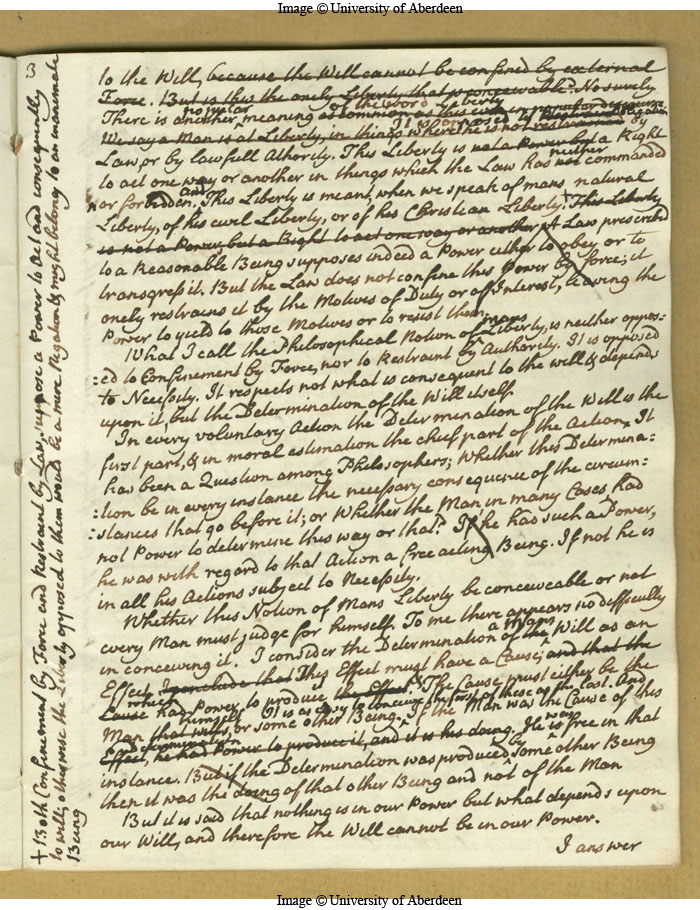 Image © University of Aberdeen
3
to the Will, because the Will cannot be confined by external
Force. But is this the onely Liberty that is conceivable? No surely
no just or of the word Liberty
There is another meaning as common as this even in
It is opposed to by a
We say a Man is at Liberty, in things where he is not restrained
Law, or by lawfull Athority. This Liberty is not a Power but a Right
neither
to act one way or another in things which the Law has not commanded
and
nor forbidden. This Liberty is meant when we speak of mans natural
Liberty, of his civil Liberty, or of his Christian Liberty. + This Liberty
is not a Power but a Right to act one way or another. A Law prescribed
to a Reasonable Being supposes indeed a Power either to obey or to
transgress it. But the Law does not confine this Power by force; it
onely restrains it by the Motives of Duty or of Interest, leaving the
Power to yield to those Motives or to resist them.
mans
What I call the Philosophical Notion of Liberty, is neither oppos=
:ed to Confinement by Force, nor to Restraint by Authority. It is opposed
to Necessity. It respects not what is consequent to the will & depends
upon it, but the Determination of the Will itself
In every voluntary Action the Determination of the Will is the
first part, & in moral estimation the chief part of the Action. It
has been a Question among Philosophers; Whether this Determina=
:tion be in every instance the necessary consequence of the circum=
:stances that go before it; or Whether the Man in many Cases had
not Power to determine this way or that? If he has such a Power,
he was with regard to that Action a free acting Being. If not he is
in all his Actions subject to Necessity.
Whether this Notion of Mans Liberty be conceiveable or not
every Man must judge for himself. To me there appears no difficulty
a Mans
in conceiving it. I consider the Determination of the Will as an
Effect, I conclude that This Effect must have a Cause; and that the
which
Cause had Power to produce the Effect. The Cause must either be the
himself It is as easy to conceive the first of these as the last. And
Man that wills, or some other Being. If the Man was the Cause of this
Determination
Effect, he had Power to produce it, and it is his doing. He was free in that
by
instance. But if the Determination was produced some other Being
then it was the doing of that other Being and not of the Man
But it is said that nothing is in our Power but what depends upon
our Will, and therefore the Will cannot be in our Power.
I answer
+ Both Confinement by Force and Restraint by Law, suppose a Power to Act and consequently
to will; otherwise the Liberty opposed to them would be a mere Negation & might belong to an inanimate
Being
Image © University of Aberdeen